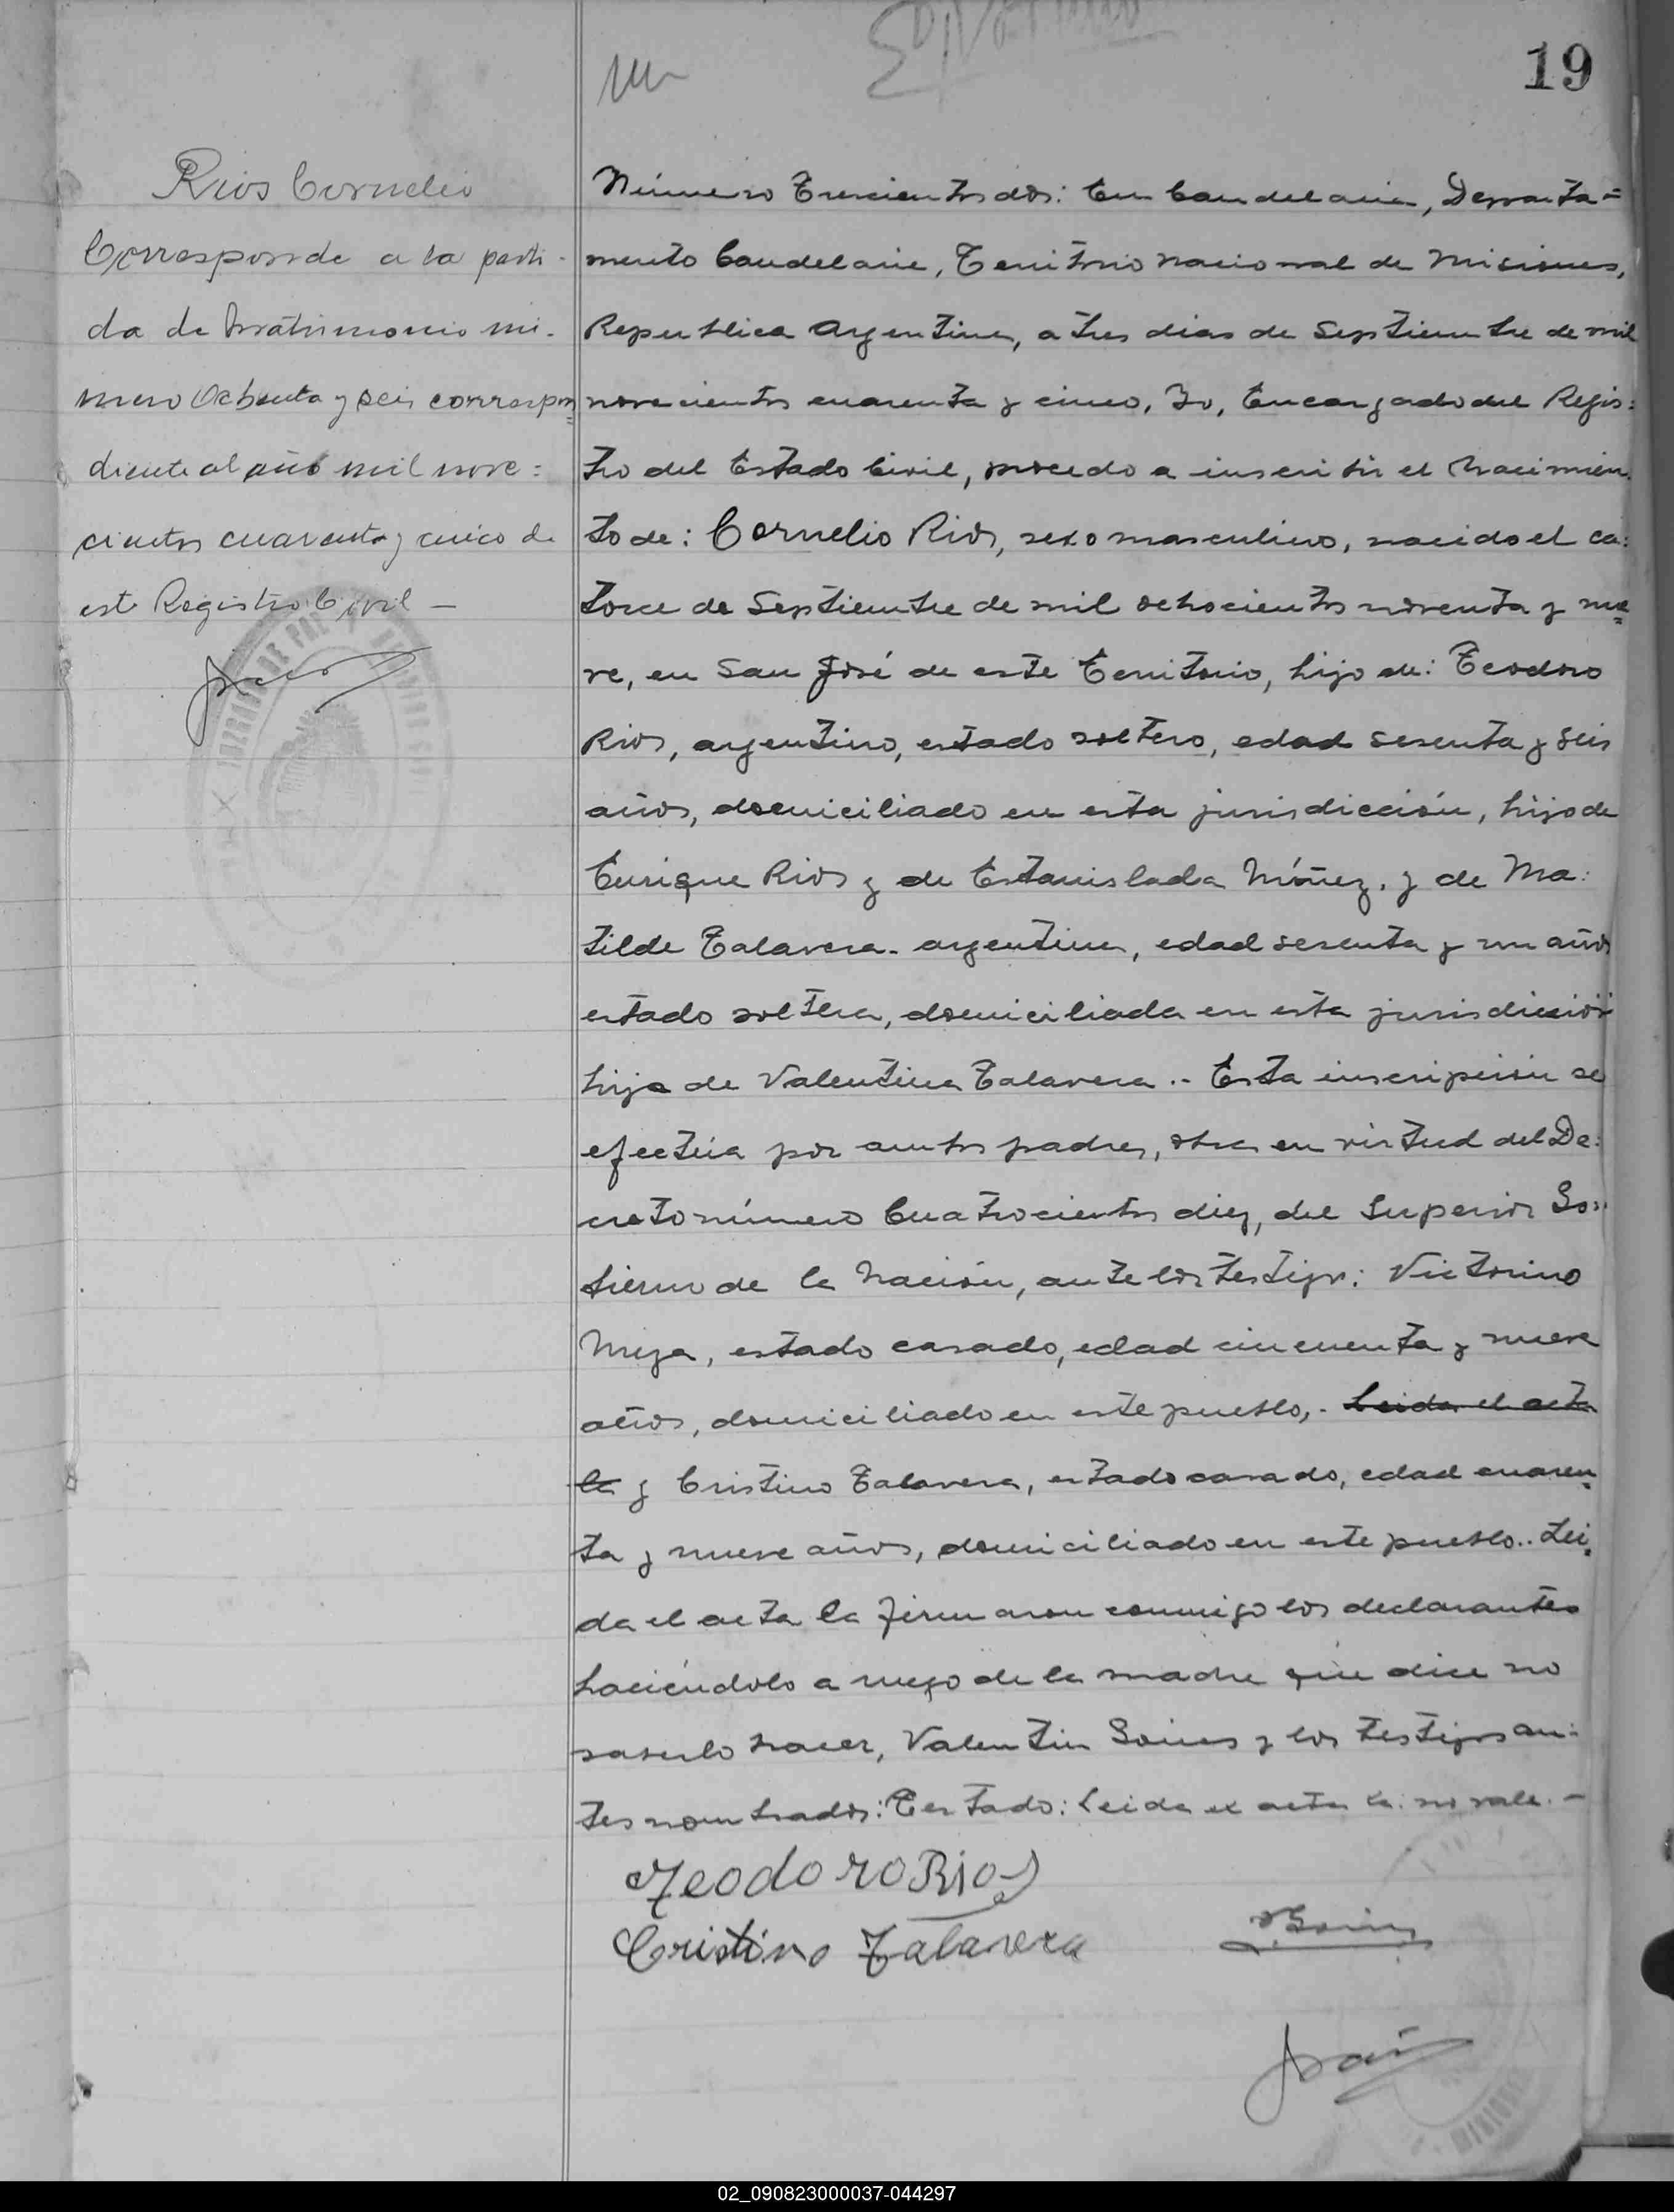 19
Rios Cornelio
Corresponde a la parti-
da de Matrimonio nú-
mero Ochenta y seis correspon=
diente al año mil nove=
cientos cuarenta y cinco de
este Registro Civil —
Número Trescientos dos: En Candelaria, Departa=
mento Candelaria, Territorio nacional de Misiones,
Republica Argentina, a tres dias de Septiembre de mil
novecientos cuarenta y cinco, Yo, Encargado del Regis=
tro del Estado Civil, procedo a inscribir el Nacimien=
to de: Cornelio Rios, sexo masculino, nacido el ca=
torce de Septiembre de mil ochocientos noventa y nue=
ve, en San José de este Territorio, hijo de: Teodoro
Rios, argentino, estado soltero, edad sesenta y seis
años, domiciliado en esta jurisdicción, hijo de
Enrique Rios y de Estanislada Núñez, y de Ma=
tilde Talavera- argentina, edad sesenta y un años
estado soltera, domiciliada en esta jurisdicción
hija de Valentina Talavera.- Esta inscripción se
efectúa por ambos padres, en virtud del De=
creto número Cuatrocientos diez, del Superior Go=
bierno de la Nación, ante los testigos: Victorino
Meza, estado casado, edad cincuenta y nueve
años, domiciliado en este pueblo,- Leida el acta
la y Cristino Talavera, estado casado, edad cuaren=
ta y nueve años, domiciliado en este pueblo.. Lei=
da el acta la firmaron conmigo los declarantes
haciéndolo a ruego de la madre que dice no
saberlo hacer, Valentin Goires y los testigos an=
tes nombrados: Testado: Leida el acta la: no vale.-
Teodoro Rios
Cristino Talavera
02_090823000037-044297